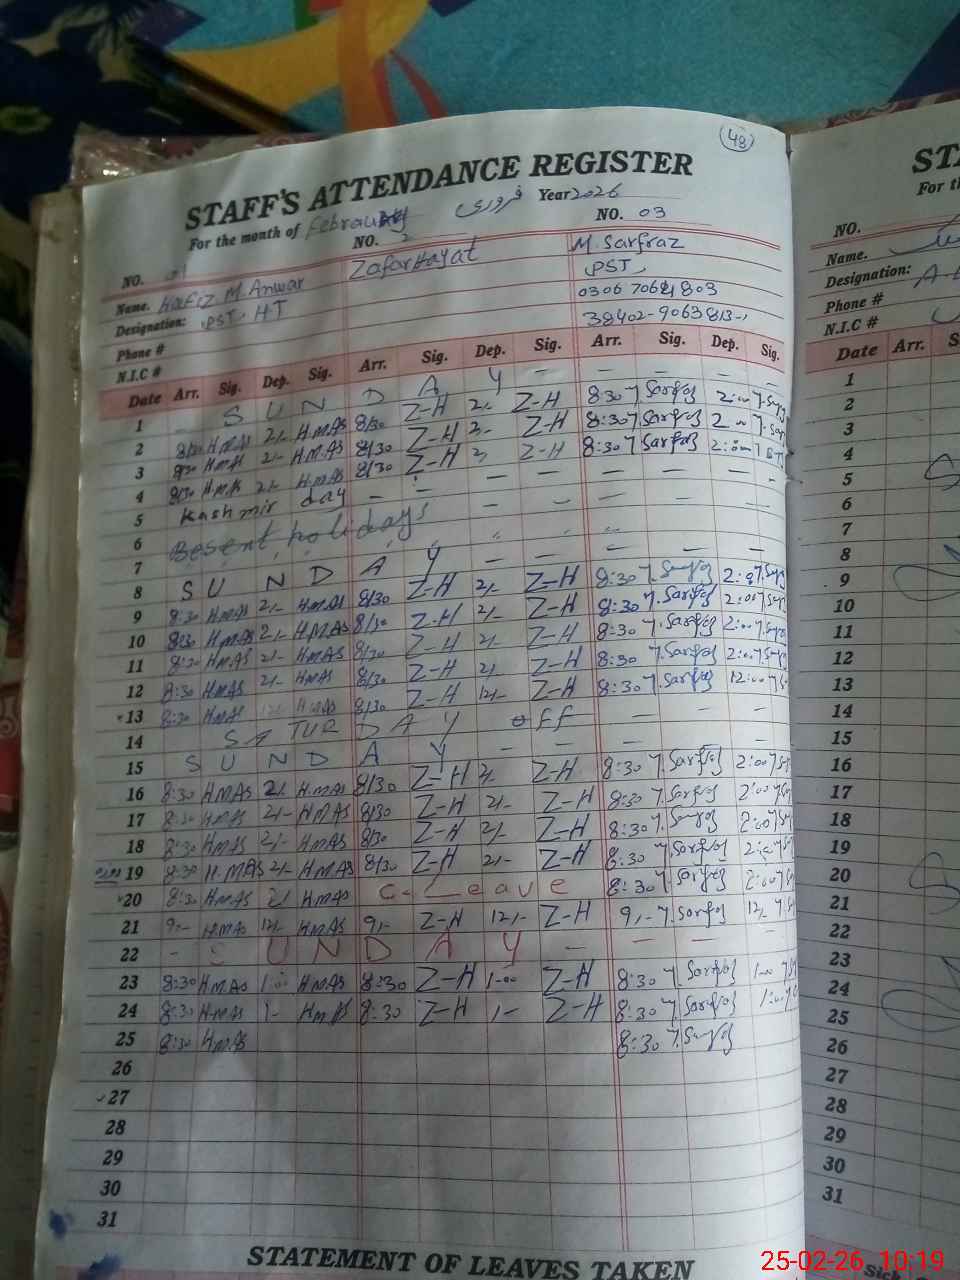 48
STAFF'S ATTENDANCE REGISTER
For the month of February فروری Year 2026
NO. 01 NO. 2 NO. 03
Name. Hafiz M. Anwar Zafar Hayat M. Sarfraz
Designation: PST, HT PST,
Phone #
N.I.C # 38402-9063813-,
Date Arr. Sig. Dep. Sig. Arr. Sig. Dep. Sig. Arr. Sig. Dep. Sig.
1 - S U N D A Y - - - - -
2 8/30 H.MAS 2/- H.MAS 8/30 Z-H 2/- Z-H 8:30 Sarfraz 2:00
3 8/30 H.MAS 2/- H.MAS 8/30 Z-H 2/- Z-H 8:30 Sarfraz 2:00
4 8/30 H.MAS 2/- H.MAS 8/30 Z-H 2/- Z-H 8:30 Sarfraz 2:00
5 Kashmir day - - - - - - -
6 Besent, holidays - - - - -
7
8 S U N D A Y - - - - -
9 8:30 HMAS 2/- HMAS 8/30 Z-H 2/- Z-H 8:30 Sarfraz 2:00
10 8:30 HMAS 2/- HMAS 8/30 Z-H 2/- Z-H 8:30 Sarfraz 2:00
11 8:30 HMAS 2/- HMAS 8/30 Z-H 2/- Z-H 8:30 Sarfraz 2:00
12 8:30 HMAS 2/- HMAS 8/30 Z-H 2/- Z-H 8:30 Sarfraz 2:00
13 8:30 HMAS 12/- HMAS 8/30 Z-H 12/- Z-H 8:30 Sarfraz 12:00
14 SATURDAY off - - - -
15 S U N D A Y - - - - -
16 8:30 HMAS 2/- HMAS 8/30 Z-H 2/- Z-H 8:30 Sarfraz 2:00
17 8:30 HMAS 2/- HMAS 8/30 Z-H 2/- Z-H 8:30 Sarfraz 2:00
18 8:30 HMAS 2/- HMAS 8/30 Z-H 2/- Z-H 8:30 Sarfraz 2:00
19 8:30 H.MAS 2/- HMAS 8/30 Z-H 2/- Z-H 8:30 Sarfraz 2:00
20 8:30 HMAS 2/- HMAS C-Leave 8:30 Sarfraz 2:00
21 9,- HMAS 12/- HMAS 9,- Z-H 12,- Z-H 9,- Sarfraz 12/-
22 - S U N D A Y - - -
23 8:30 HMAS 1:00 HMAS 8:30 Z-H 1-00 Z-H 8:30 Sarfraz 1-00
24 8:30 HMAS 1- HMAS 8:30 Z-H 1- Z-H 8:30 Sarfraz 1:00
25 8:30 HMAS 8:30 Sarfraz
26
27
28
29
30
31
STATEMENT OF LEAVES TAKEN
For th
NO.
Name.
Designation: A-
Phone #
N.I.C #
Date Arr. S
1
2
3
4
5
6
7
8
9
10
11
12
13
14
15
16
17
18
19
20
21
22
23
24
25
26
27
28
29
30
31
25-02-26 10:19